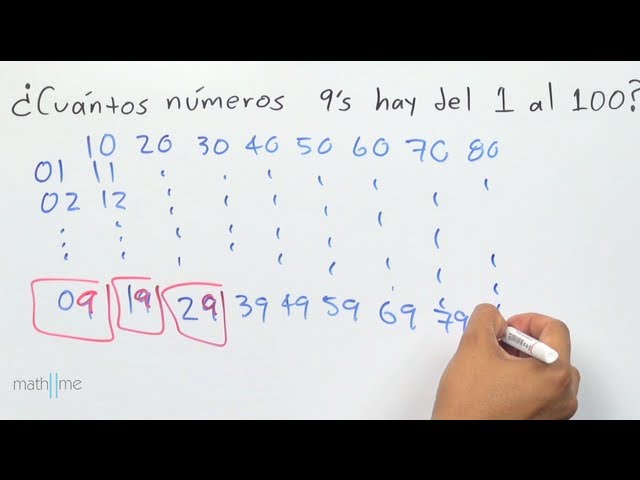 ¿Cuántos números 9's hay del 1 al 100?
10 20 30 40 50 60 70 80
01 11
02 12
09 19 29 39 49 59 69 79
math||me